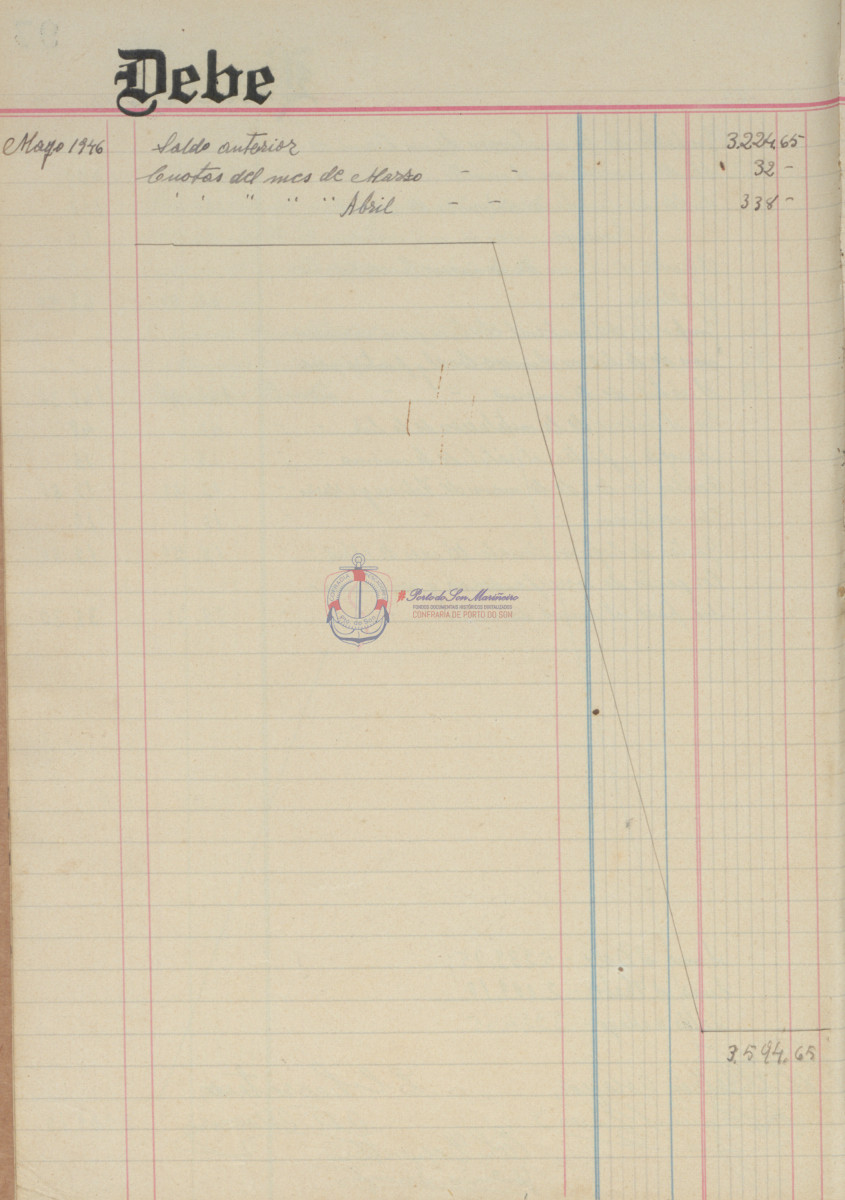 Debe
Mayo 1946 Saldo anterior 3.224,65
Cuotas del mes de Marzo - - 32 -
" " " " " Abril - - 338 -
#Porto do Son Mariñeiro
FONDOS DOCUMENTAIS HISTÓRICOS DIXITALIZADOS
CONFRARÍA DE PORTO DO SON
Pto. do Son
3.594,65